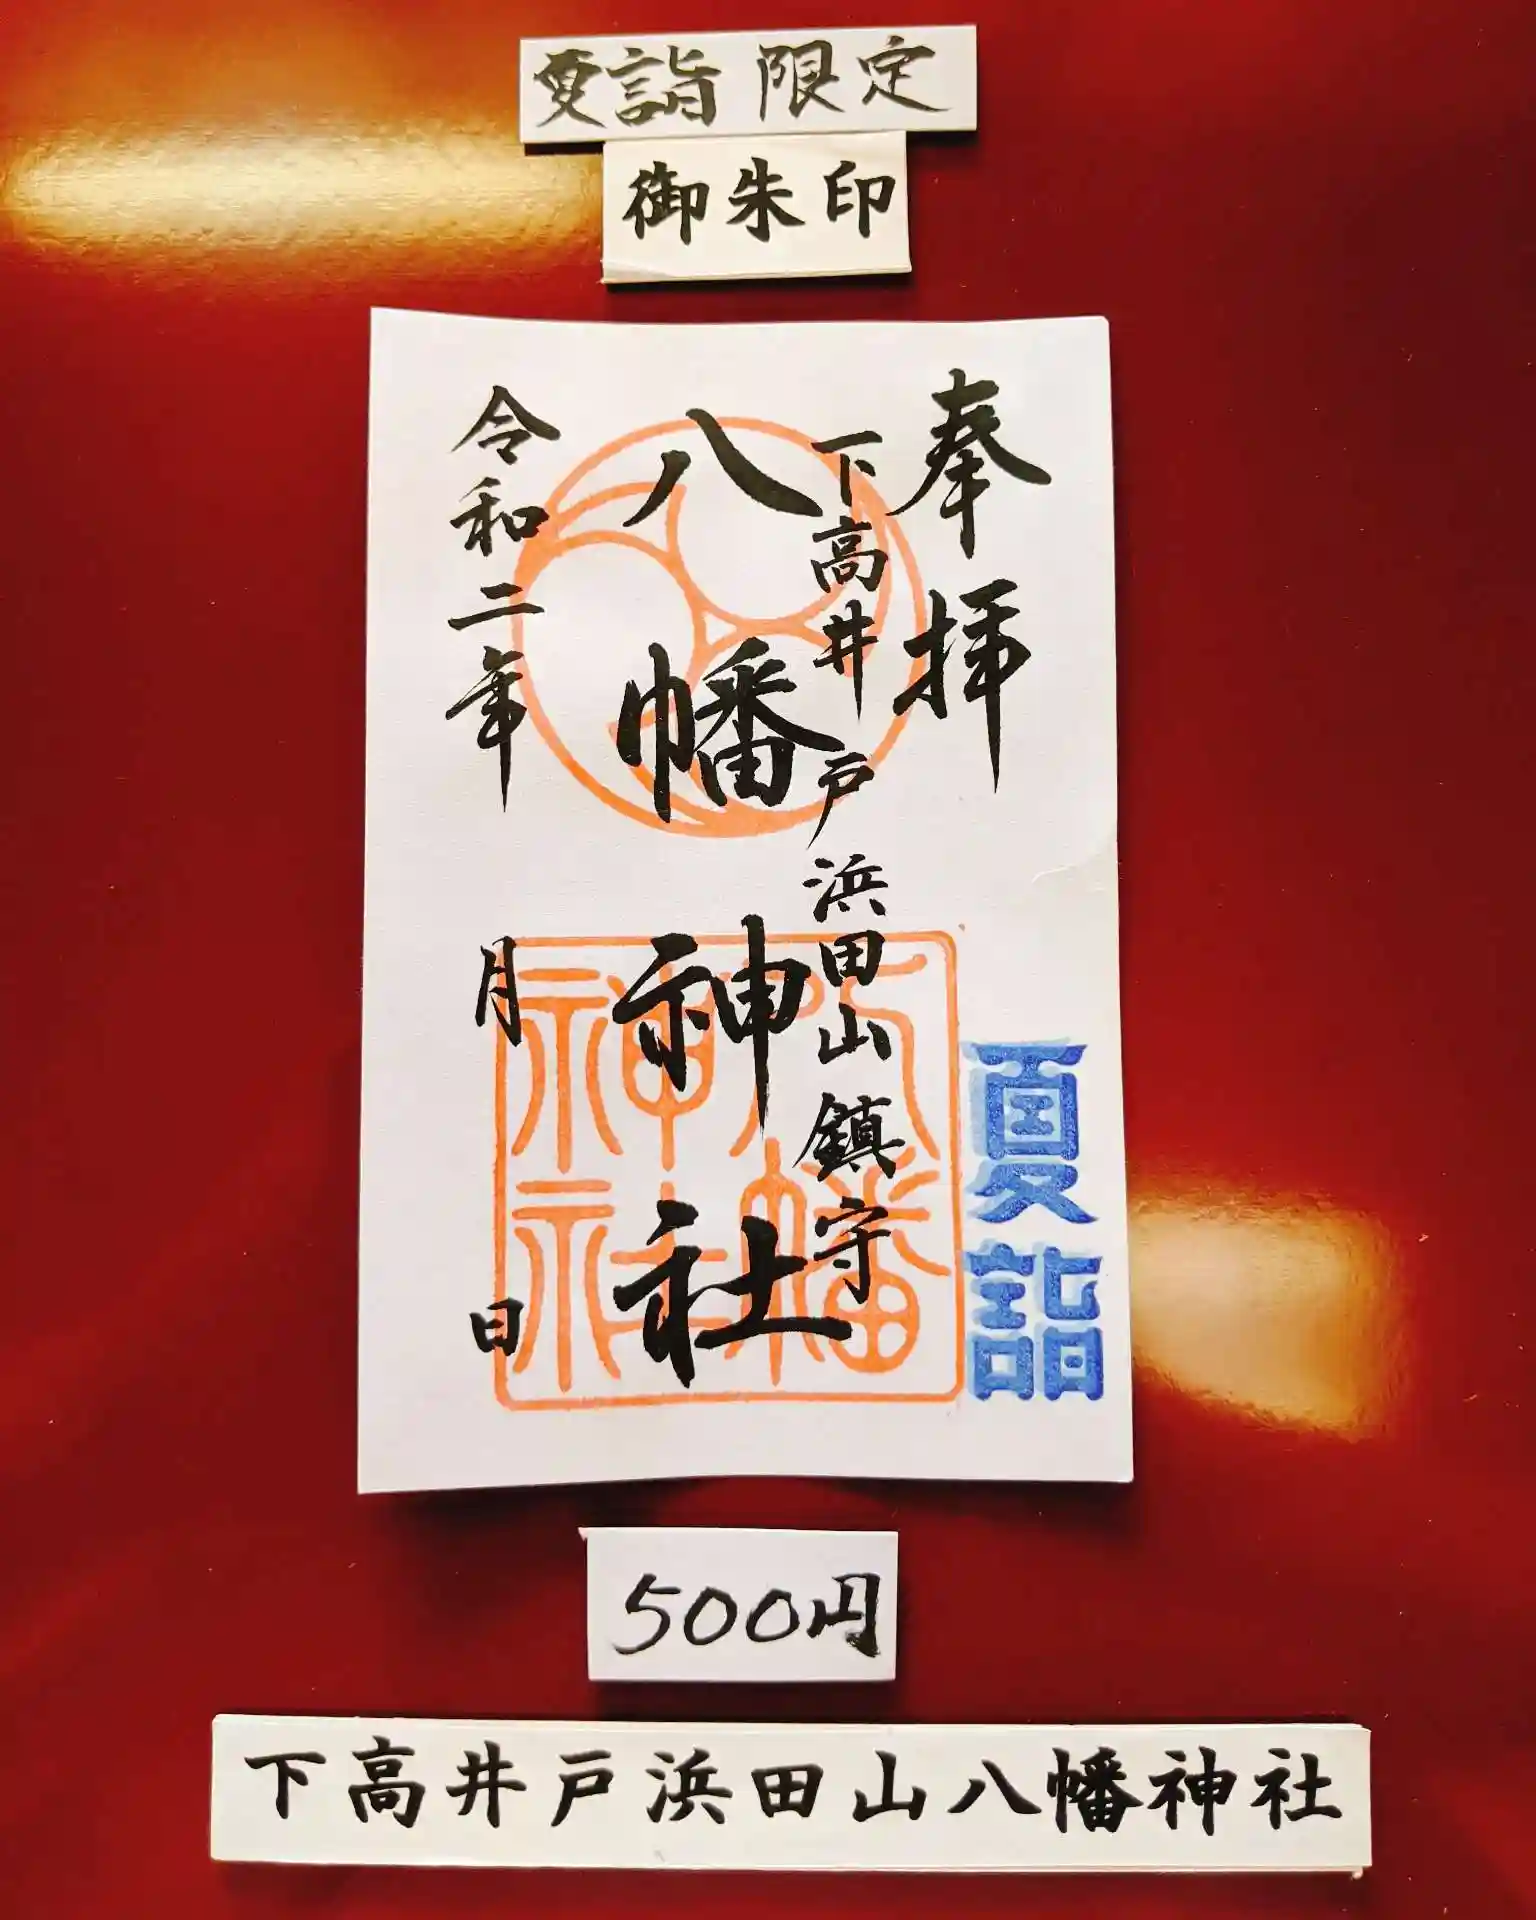 夏詣 限定
御朱印
奉拝
下高井戸浜田山鎮守
八幡神社
令和二年 月 日
八幡
神社
夏詣
500円
下高井戸浜田山八幡神社